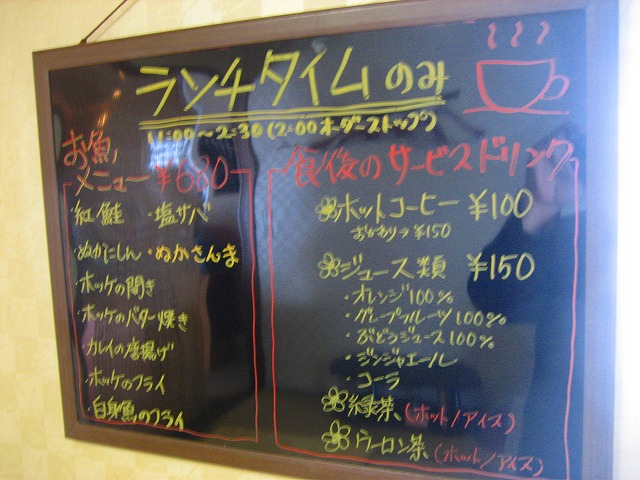 ランチタイムのみ
11:00〜2:30 (2:00オーダーストップ)
お魚メニュー ¥680
・紅鮭 ・塩サバ
・ぬかにしん ・ぬかさんま
・ホッケの開き
・ホッケのバター焼き
・カレイの唐揚げ
・ホッケのフライ
・白身魚のフライ
食後のサービスドリンク
ホットコーヒー ¥100
おかわり→¥150
ジュース類 ¥150
・オレンジ100%
・グレープフルーツ100%
・ぶどうジュース100%
・ジンジャエール
・コーラ
緑茶、(ホット/アイス)
ウーロン茶 (ホット/アイス)